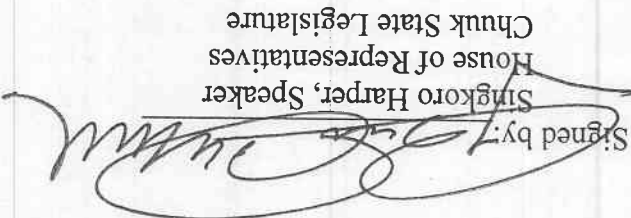 Signed by:
Singkoro Harper, Speaker
House of Representatives
Chuuk State Legislature